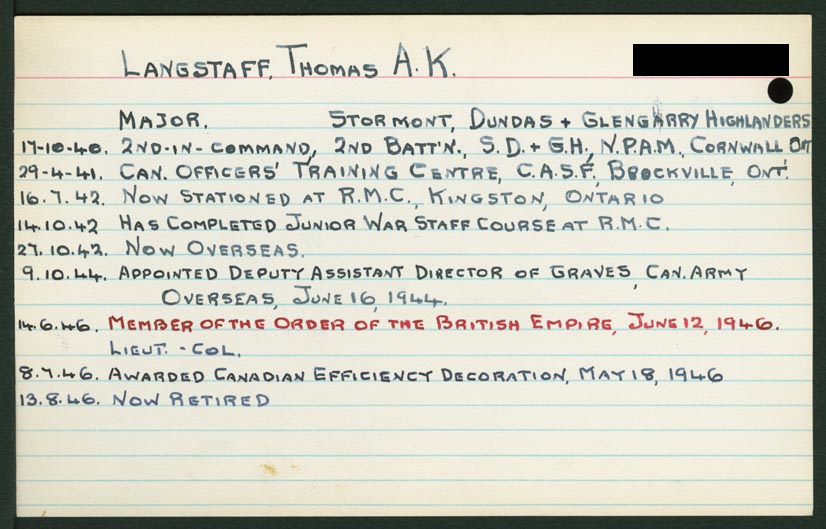 LANGSTAFF, THOMAS A.K.
MAJOR. STORMONT, DUNDAS + GLENGARRY HIGHLANDERS
17-10-40. 2ND-IN-COMMAND, 2ND BATT'N., S.D. + G.H., N.P.A.M., CORNWALL ONT
29-4-41. CAN. OFFICERS' TRAINING CENTRE, C.A.S.F., BROCKVILLE, ONT.
16.7.42. NOW STATIONED AT R.M.C., KINGSTON, ONTARIO
14.10.42 HAS COMPLETED JUNIOR WAR STAFF COURSE AT R.M.C.
27.10.42. NOW OVERSEAS.
9.10.44. APPOINTED DEPUTY ASSISTANT DIRECTOR OF GRAVES, CAN. ARMY
OVERSEAS, JUNE 16, 1944.
14.6.46. MEMBER OF THE ORDER OF THE BRITISH EMPIRE, JUNE 12, 1946.
LIEUT.-COL.
8.7.46. AWARDED CANADIAN EFFICIENCY DECORATION, MAY 18, 1946
13.8.46. NOW RETIRED